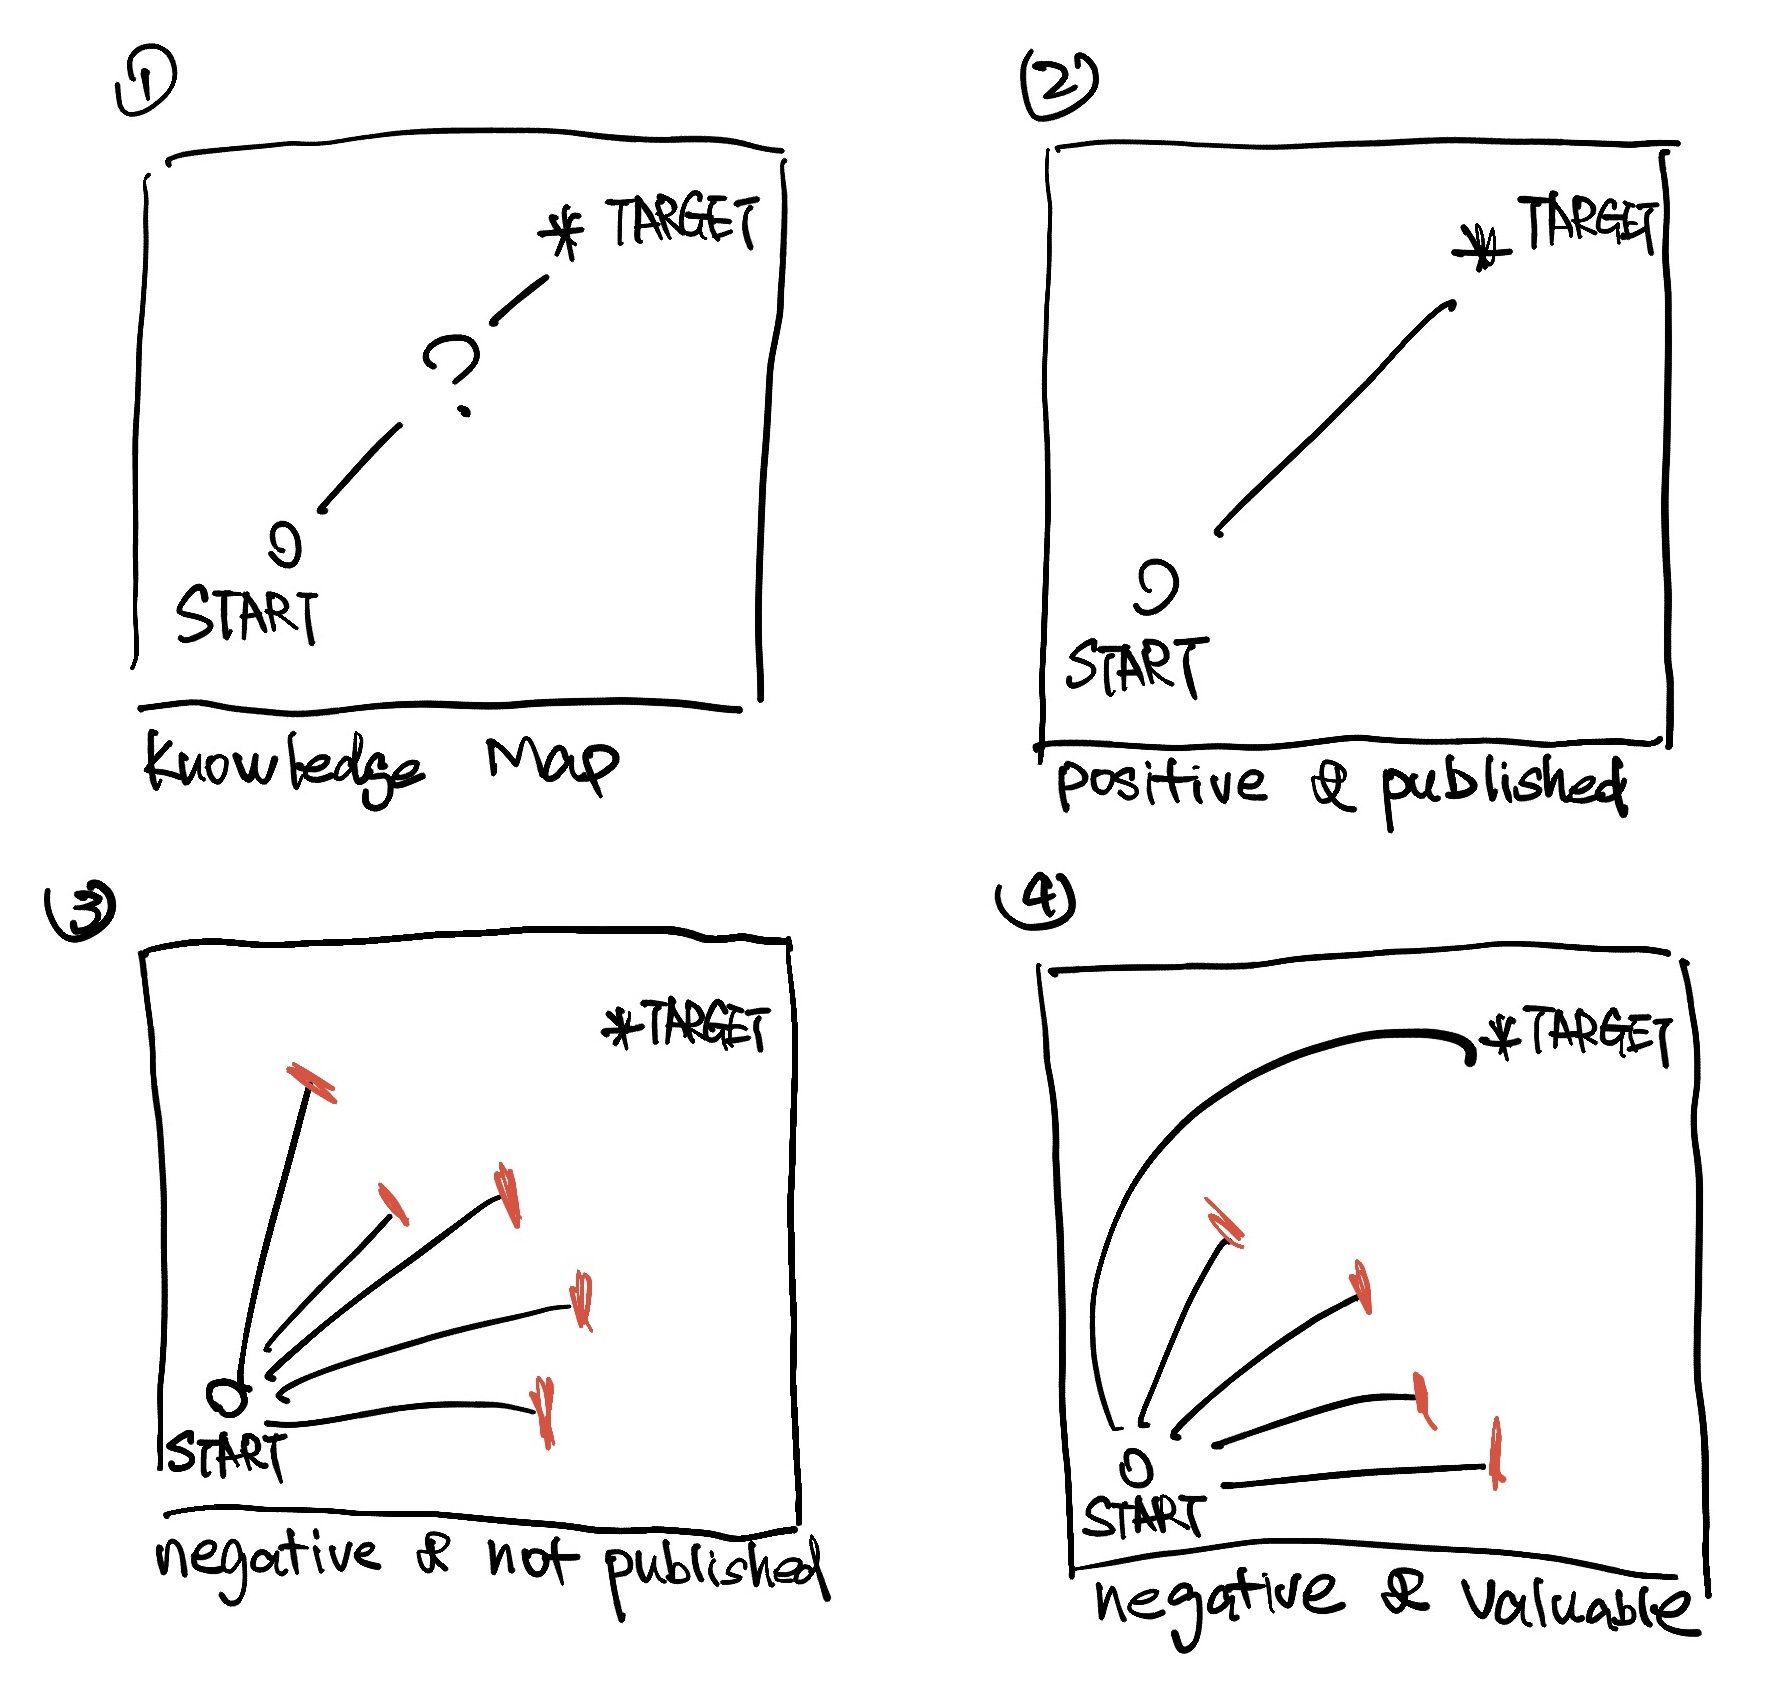 ①
* TARGET
?
START
Knowledge Map
②
* TARGET
START
positive & published
③
* TARGET
START
negative & not published
④
* TARGET
START
negative & valuable